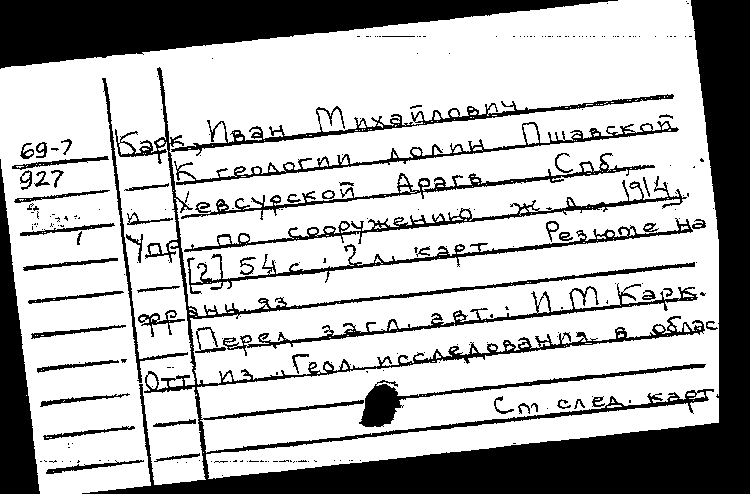 Карк, Иван Михайлович.
69-7
К геологии долин Пшавской
927
и Хевсурской Арагв. [Спб.,
Упр. по сооружению ж. д., 1914].
[2], 54 с.; 2 л. карт. Резюме на
франц. яз.
Перед загл. авт.: И.М.Карк.
Отт. из „Геол. исследования в облас
См след. карт.